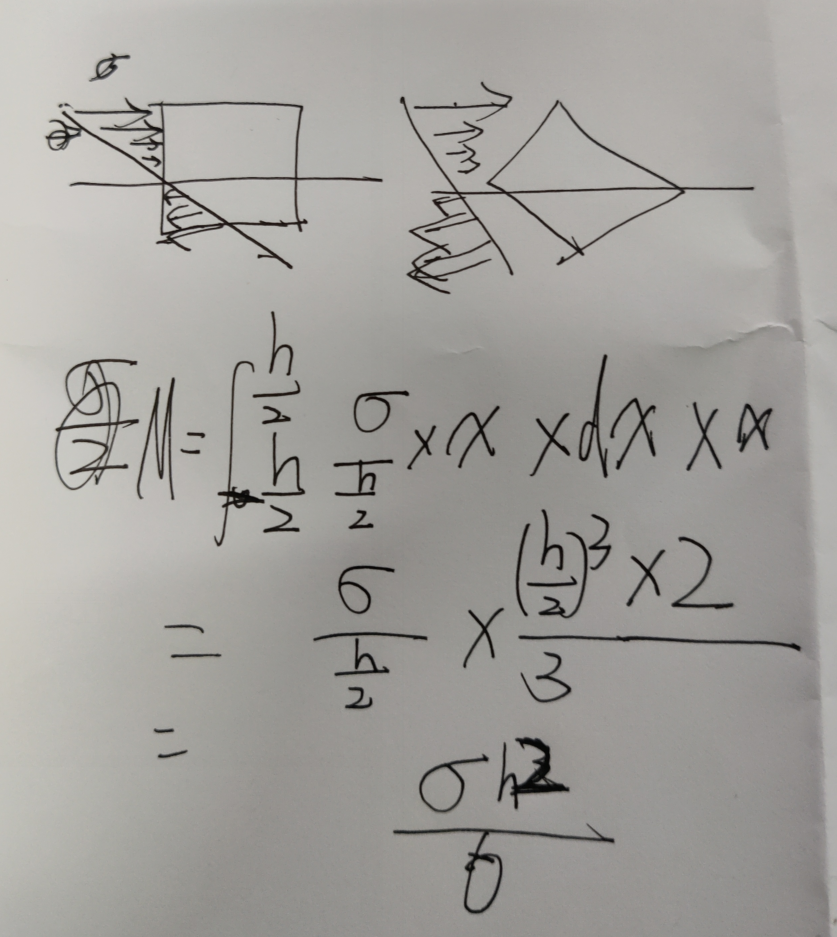 σ
M = ∫ h/2 h/2 σ/(h/2) × x × dx × x
= σ/(h/2) × ((h/2)^3 × 2)/3
=
σh^2/6